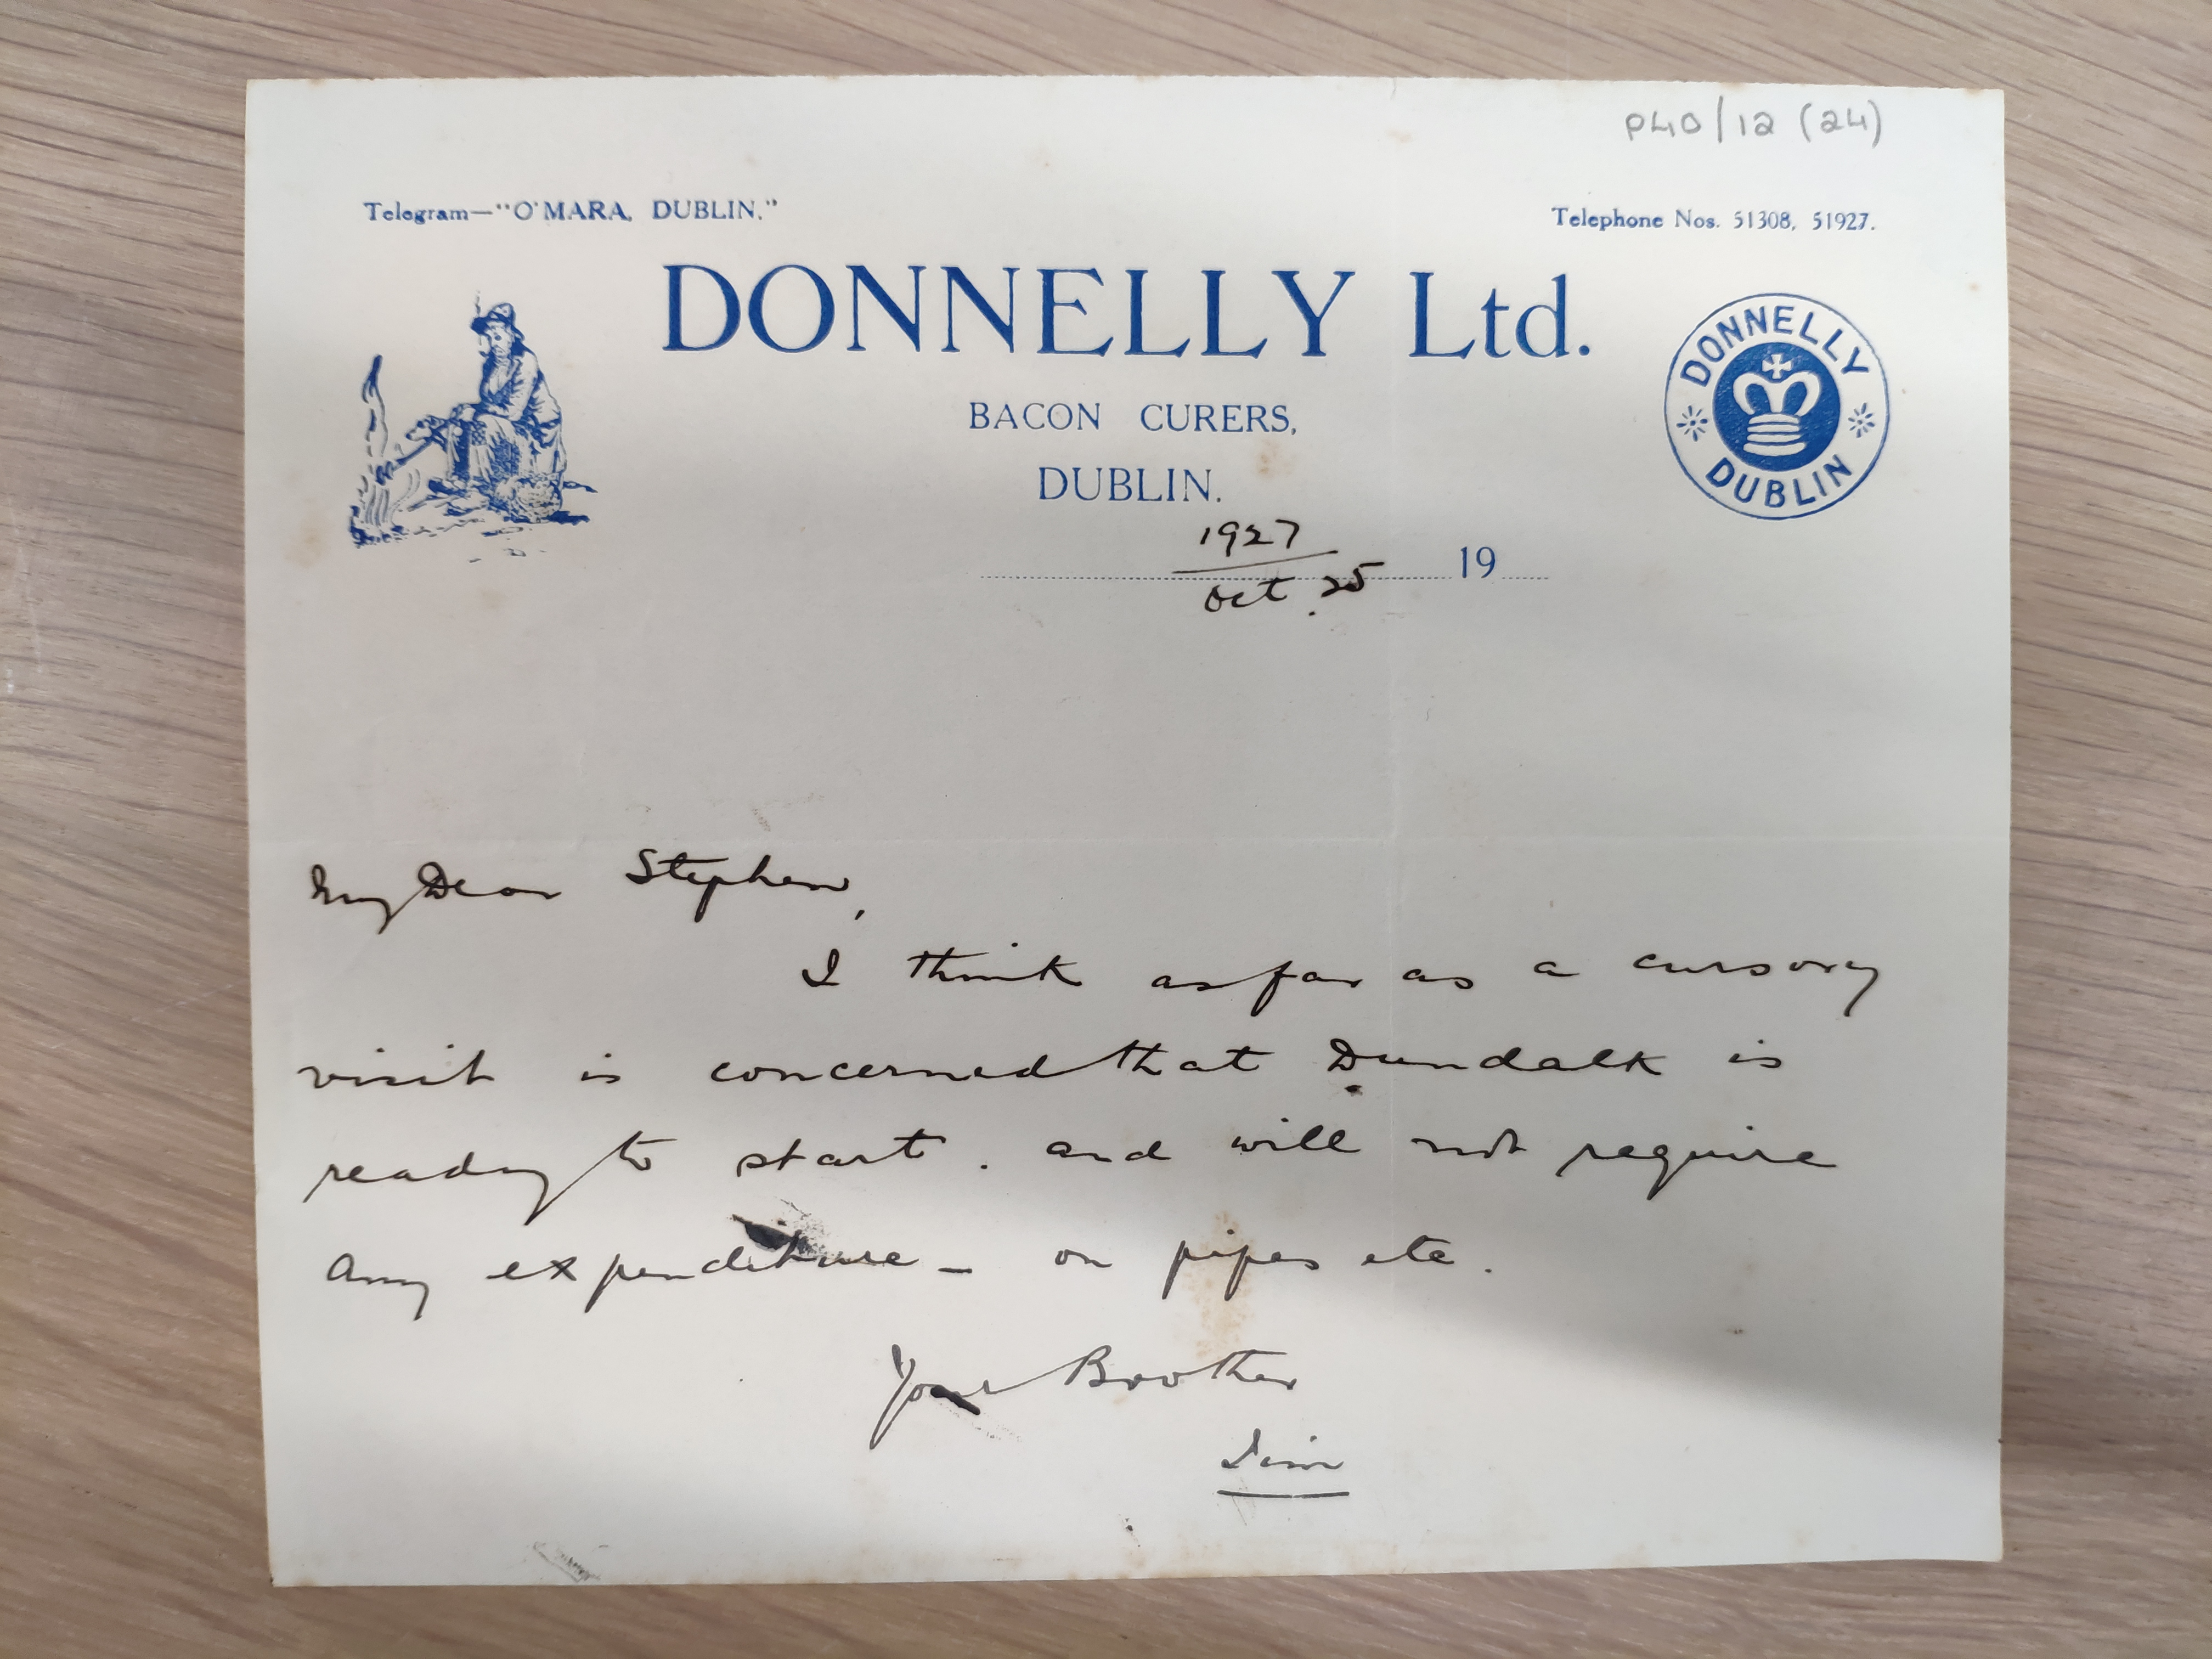 P40/12 (24)
Telegram—"O'MARA, DUBLIN."
Telephone Nos. 51308, 51927.
DONNELLY Ltd.
BACON CURERS,
DUBLIN.
DONNELLY
DUBLIN
1927
Oct. 25
19
My Dear Stephen,
I think as far as a cursory
visit is concerned that Dundalk is
ready to start. and will not require
any expenditure - on pipes etc.
Your Brother
Jim